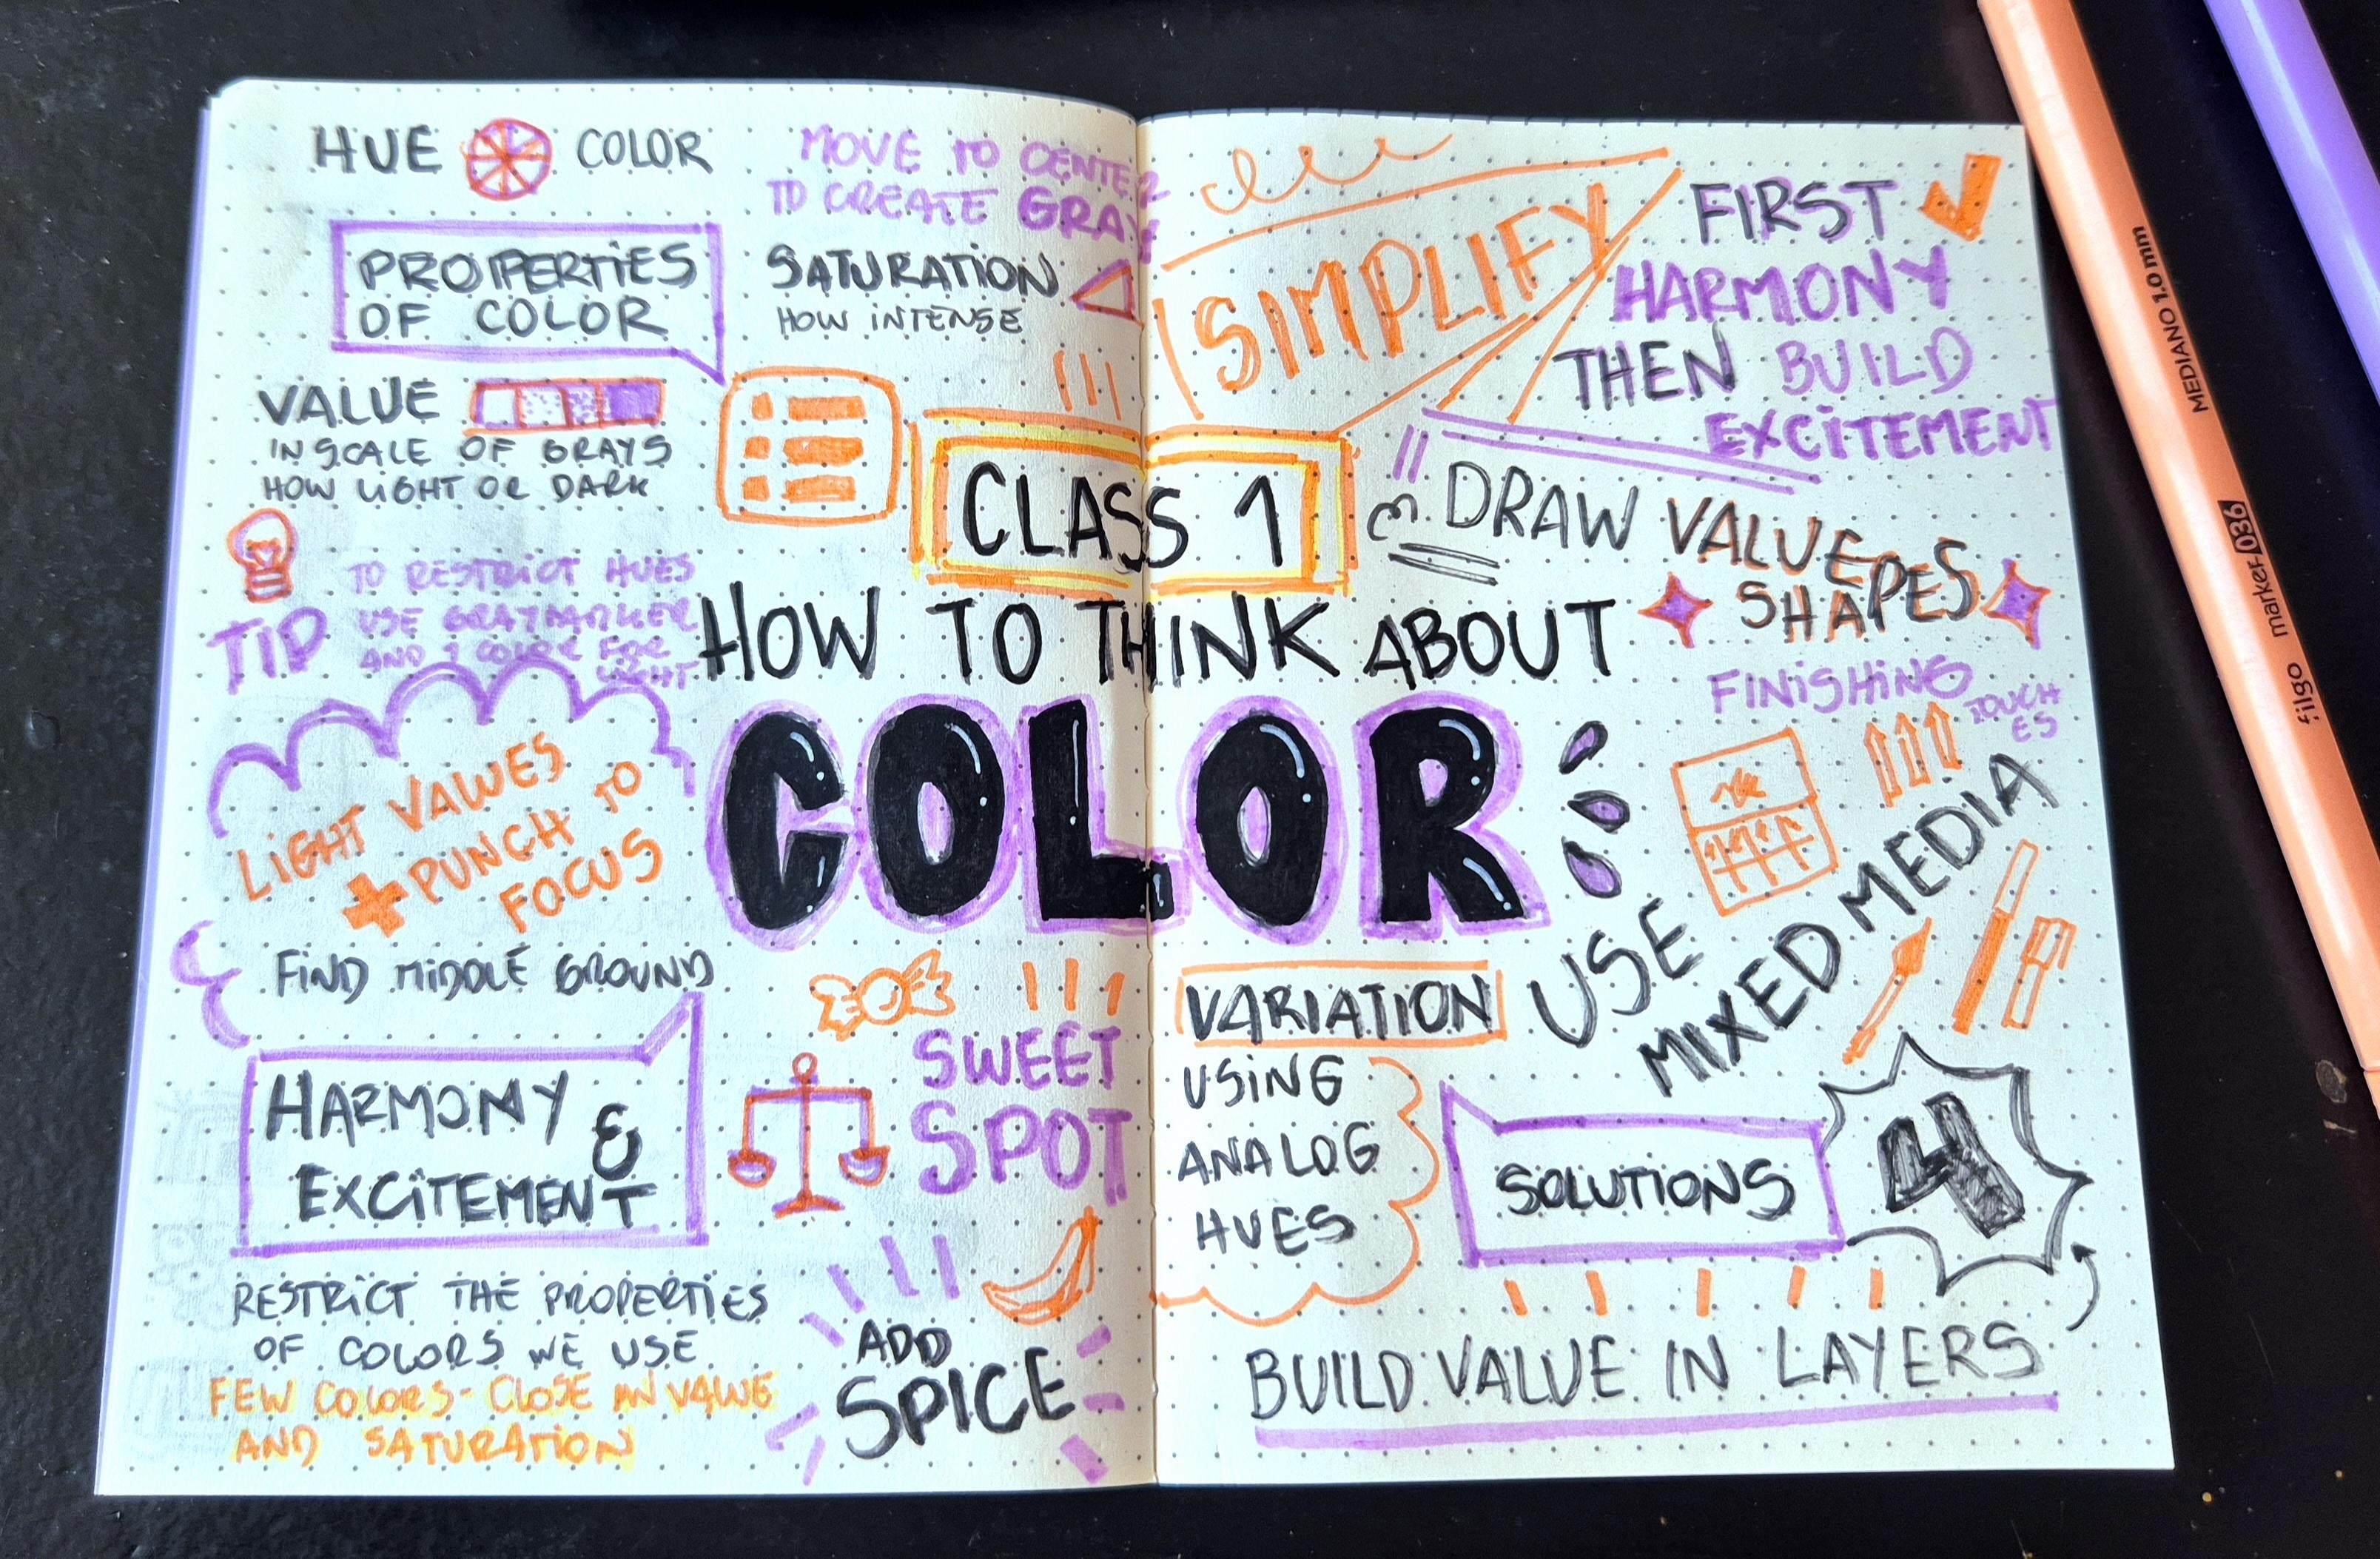 HUE COLOR
MOVE TO CENTER
TO CREATE GRAY
PROPERTIES
OF COLOR
SATURATION
HOW INTENSE
VALUE
IN SCALE OF GRAYS
HOW LIGHT OR DARK
TIP
TO RESTRICT HUES
USE GRAY MARKER
AND 1 COLOR FOR
LIGHT
LIGHT VALUES
+ PUNCH TO
FOCUS
FIND MIDDLE GROUND
HARMONY &
EXCITEMENT
RESTRICT THE PROPERTIES
OF COLORS WE USE
FEW COLORS - CLOSE IN VALUE
AND SATURATION
CLASS 1
HOW TO THINK ABOUT
COLOR
SWEET
SPOT
ADD
SPICE
SIMPLIFY
FIRST
HARMONY
THEN BUILD
EXCITEMENT
DRAW VALUE
SHAPES
FINISHING
TOUCH
ES
USE
MIXED MEDIA
VARIATION
USING
ANALOG
HUES
SOLUTIONS
4
BUILD VALUE IN LAYERS
MEDIANO 1.0 mm
filgo marker 036